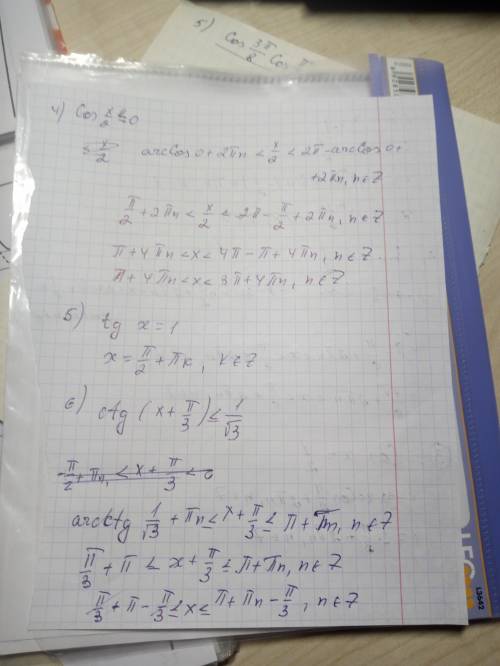 5) cos 3π/8 cos π
4) cos x/2 ≤ 0
arccos 0 + 2πn < x/2 < 2π - arccos 0 +
+ 2πn, n ∈ Z
π/2 + 2πn < x/2 < 2π - π/2 + 2πn, n ∈ Z
π + 4πn < x < 4π - π + 4πn, n ∈ Z
π + 4πn < x < 3π + 4πn, n ∈ Z
5) tg x = 1
x = π/2 + πk, k ∈ Z
6) ctg (x + π/3) ≤ 1/√3
-π/2 + πn < x + π/3 < 0
arcctg 1/√3 + πn ≤ x + π/3 ≤ π + πn, n ∈ Z
π/3 + π ≤ x + π/3 ≤ π + πn, n ∈ Z
π/3 + π - π/3 ≤ x ≤ π + πn - π/3, n ∈ Z